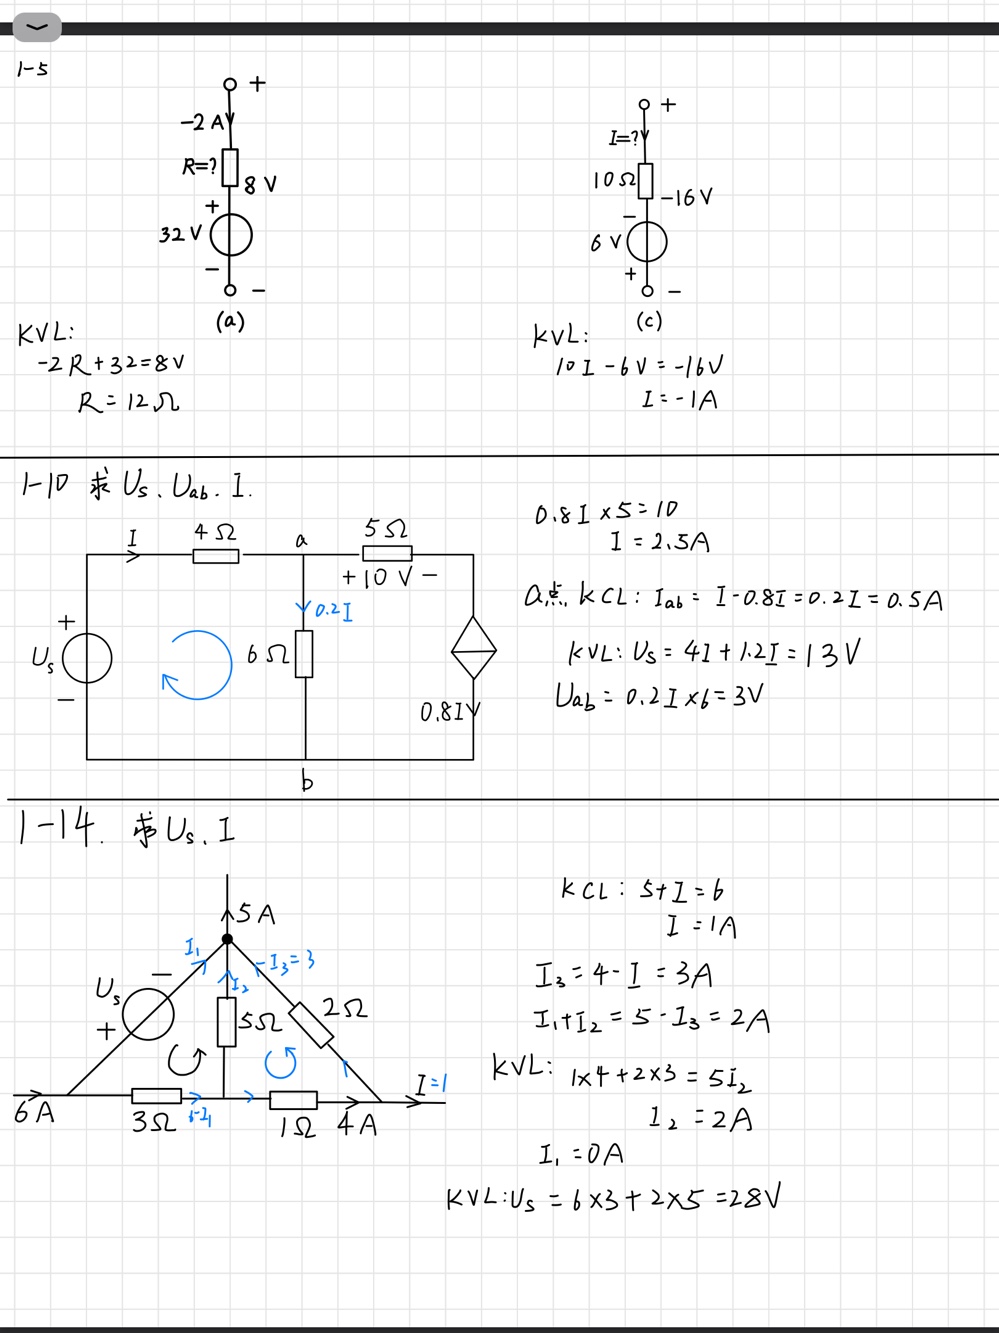 1-5
+
-2 A
R=?
8 V
+
32 V
-
-
(a)
KVL:
-2 R + 32 = 8 V
R = 12 Ω
+
I=?
10 Ω
-16 V
-
6 V
+
-
(c)
KVL:
10 I - 6 V = -16 V
I = -1 A
1-10 求 Us、Uab、I.
I
4 Ω
a
5 Ω
+ 10 V -
0.2 I
+
Us
-
6 Ω
0.8 I
b
0.8 I × 5 = 10
I = 2.5 A
a点 KCL: Iab = I - 0.8 I = 0.2 I = 0.5 A
KVL: Us = 4 I + 1.2 I = 13 V
Uab = 0.2 I × 6 = 3 V
1-14. 求 Us、I
5 A
I₁
I₂
I₃ = 3
Us
-
+
5 Ω
2 Ω
6 A
3 Ω
6-I₁
1 Ω
4 A
I = 1
KCL: 5 + I = 6
I = 1 A
I₃ = 4 - I = 3 A
I₁ + I₂ = 5 - I₃ = 2 A
KVL: 1 × 4 + 2 × 3 = 5 I₂
I₂ = 2 A
I₁ = 0 A
KVL: Us = 6 × 3 + 2 × 5 = 28 V